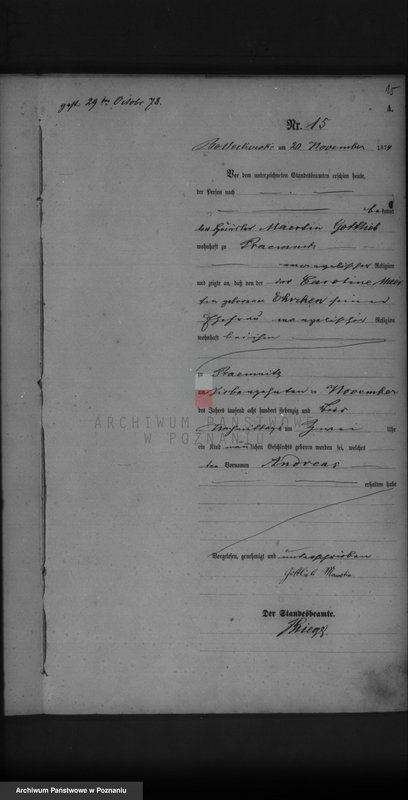 gest. 29ten Octobr 78.
15
A.
Nr. 15
am 20. November 1874
Vor dem unterzeichneten Standesbeamten erschien heute,
der Person nach
bekannt
der Häusler Martin Gottlieb
wohnhaft zu
evangelischer Religion
und zeigte an, daß von der Caroline
geborenen seiner
Ehefrau evangelischer Religion
wohnhaft bei ihm
zu
am siebenzehnten November
des Jahres tausend acht hundert siebenzig und vier
Nachmittags um Zwei Uhr
ein Kind männlichen Geschlechts geboren worden sei, welches
den Vornamen Andreas
erhalten habe
Vorgelesen, genehmigt und unterschrieben
Gottlieb
Der Standesbeamte.
ARCHIWUM PAŃSTWOWE
W POZNANIU
Archiwum Państwowe w Poznaniu